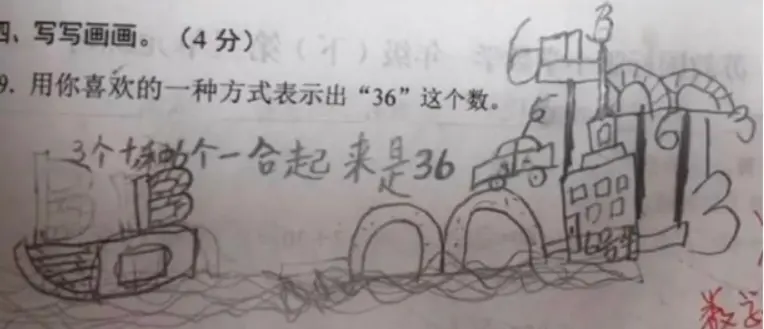 四、写写画画。（4分）
9. 用你喜欢的一种方式表示出“36”这个数。
3个十和6个一合起来是36
6
3
6
6
3
3
数学